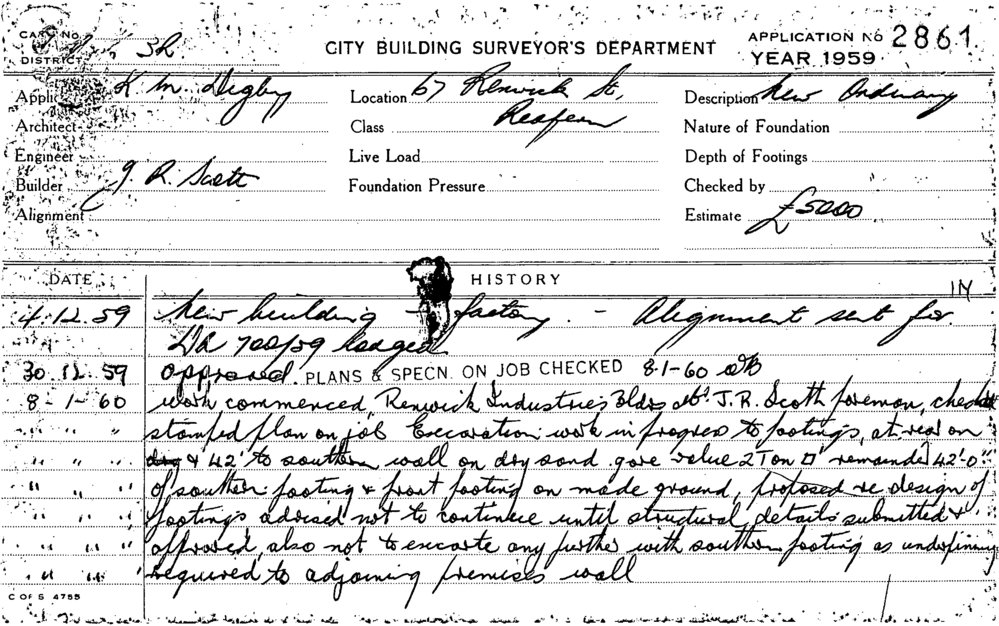 CARD No
DISTRICT
CITY BUILDING SURVEYOR'S DEPARTMENT
APPLICATION No 2861
YEAR 1959
K. M. Digby
Location 67 Renwick St,
Redfern
Description New Ordinary
Architect
Class
Nature of Foundation
Engineer
Live Load
Depth of Footings
Builder J. R. Scott
Foundation Pressure
Checked by
Alignment
Estimate £5000
DATE
HISTORY
4.12.59 New building - factory. - Alignment sent for.
DA 700/59 lodged
30.12.59 approved. PLANS & SPECN. ON JOB CHECKED 8-1-60
8-1-60 work commenced, Renwick Industries Bldrs J.R. Scott foreman, checked
" " " stamped plan on job Excavation work in progress to footings, at rear on
" " " & 42' to southern wall on dry sand gave value 2 Ton □' remainder 42'-0"
" " " of southern footing & front footing on made ground, proposed re design of
" " " footings advised not to continue until structural details submitted &
" " " approved, also not to excavate any further with southern footing as underpinning
" " " required to adjoining premises wall
C OF S 4755